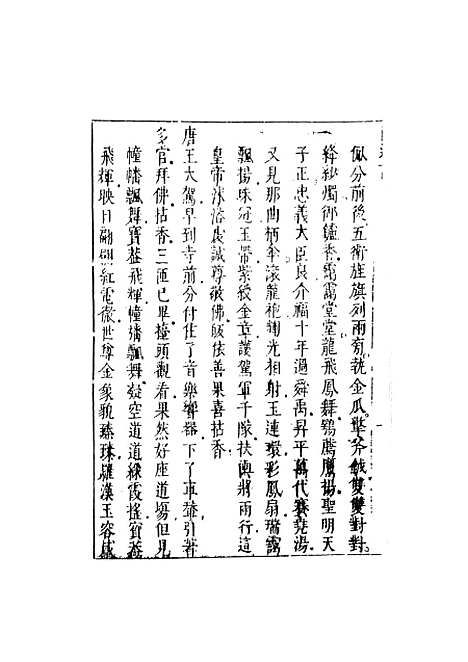 似分前後五衛旌旗列兩旁執金瓜擎斧鉞雙雙對對
絳紗燭御鑪香靄靄堂堂龍飛鳳舞鶚薦鷹揚聖明天
子正忠義大臣良介福十年過舜禹昇平萬代賽堯湯
又見那曲柄傘滾龍袍輝光相射玉連環彩鳳扇瑞靄
飄揚珠冠玉帶紫綬金章護駕軍千隊扶輿將兩行這
皇帝沐浴虔誠尊敬佛皈依善果喜拈香
唐王大駕早到寺前分付住了音樂響器下了車輦引著
多官拜佛拈香三匝已畢擡頭觀看果然好座道場但見
幢幡飄舞寶蓋飛輝幢幡飄舞凝空道道綵霞搖寶蓋
飛輝映日翩翩紅電徹世尊金象貌臻臻羅漢玉容威